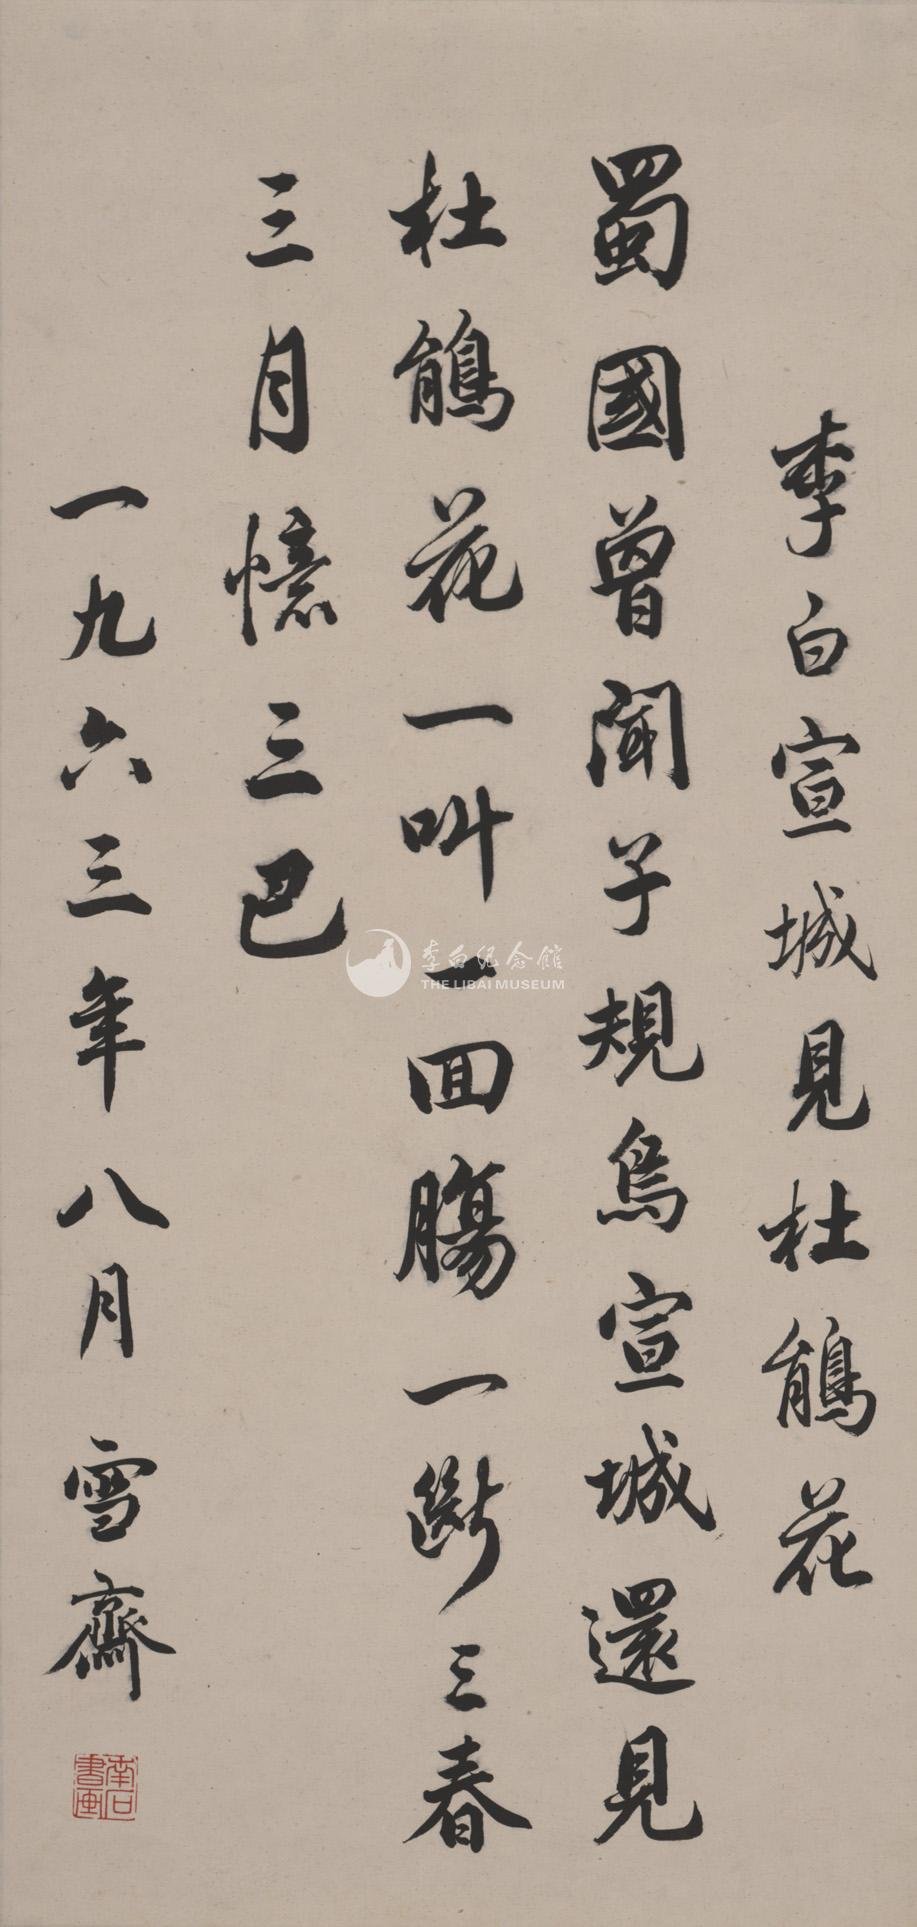 李白宣城見杜鵑花
蜀國曾聞子規鳥宣城還見
杜鵑花一叫一回腸一斷三春
三月憶三巴
一九六三年八月雪齋
南石書畫
李白纪念館
THE LIBAI MUSEUM